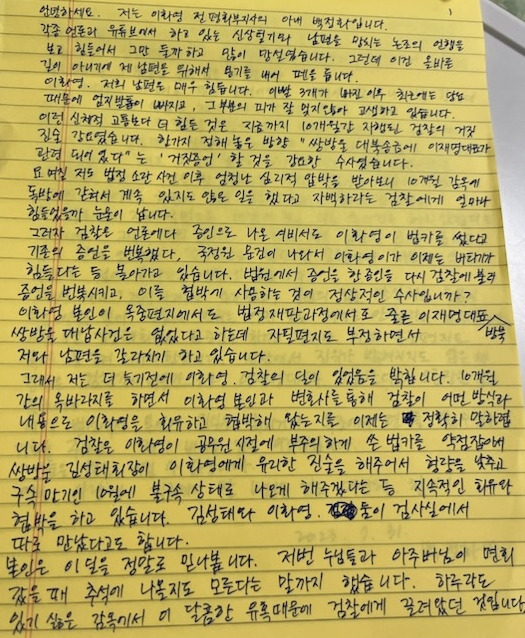 안녕하세요. 저는 이화영 전 평화부지사의 아내 백정화입니다. 1
각종 언론과 유튜브에서 하고 있는 신상털기와 남편을 망치는 논조의 언행을
보고 힘들어서 그만 둘까 하고 많이 망설였습니다. 그런데 이건 올바른
길이 아니기에 제 남편을 위해서 용기를 내어 펜을 듭니다.
이화영. 저희 남편은 매우 힘듭니다. 이빨 3개가 빠진 이후 최근에는 당뇨
때문에 엄지발톱이 빠지고, 그부분의 피가 잘 멎지않아 고생하고 있습니다.
이런 신체적 고통보다 더 힘든 것은 지금까지 10개월간 자행된 검찰의 거짓
진술 강요였습니다. 검찰이 정해 놓은 방향 "쌍방울 대북송금에 이재명대표가
관련 되어 있다"는 '거짓증언' 할 것을 강요한 수사였습니다.
요 며칠 저도 법정 소란 사건 이후 엄청난 심리적 압박을 받아보니 10개월 감옥에
독방에 갇혀서 계속 있지도 않은 일을 했다고 자백하라는 검찰에게 얼마나
힘들었을까 눈물이 납니다.
그러자 검찰은 언론에다 증인으로 나온 여비서도 이화영이 법카를 썼다고
기존의 증언을 번복했다, 국정원 문건이 나와서 이화영이가 이제는 버티기가
힘들다는 등 몰아가고 있습니다. 법원에서 증언을 한 증인을 다시 검찰에 불러
증언을 번복시키고, 이를 협박에 사용하는 것이 정상적인 수사입니까?
이화영 본인이 옥중편지에서도 법정 재판과정에서도 줄곧 이재명대표 방북
쌍방울 대납사건은 없었다고 하는데 자필편지도 부정하면서
저와 남편을 갈라치기 하고 있습니다.
그래서 저는 더 늦기전에 이화영. 검찰의 딜이 있었음을 밝힙니다. 10개월
간의 옥바라지를 하면서 이화영 본인과 변호사를 통해 검찰이 어떤 방식과
내용으로 이화영을 회유하고 협박해 왔는지를 이제는 정확히 말하렵
니다. 검찰은 이화영이 공무원 시절에 부주의하게 쓴 법카를 약점잡아서
쌍방울 김성태회장이 이화영에게 유리한 진술을 해주어서 형량을 낮추고
구속 만기인 10월에 불구속 상태로 나오게 해주겠다는 등 지속적인 회유와
협박을 하고 있습니다. 김성태와 이화영. 둘이 검사실에서
따로 만났다고도 합니다.
본인은 이 딜을 정말로 만나봅니다. 저번 누님들과 아주버님이 면회
갔을때 추석에 나올지도 모른다는 말까지 했습니다. 하루라도
있기 싫은 감옥에서 이 달콤한 유혹때문에 검찰에게 끌려왔던 것입니다